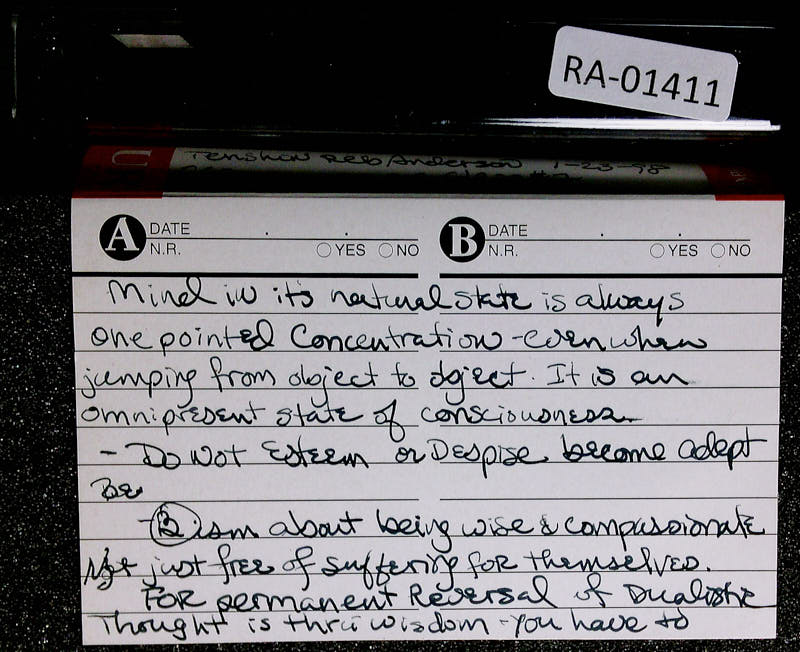 RA-01411
Tenshin Reb Anderson 1-23-98
A DATE
N.R. YES NO
B DATE
N.R. YES NO
Mind in its natural state is always
one pointed Concentration - even when
jumping from object to object. It is an
omnipresent state of consciousness
- Do Not Esteem or Despise become adept
Be
- (B) ism about being wise & compassionate
Not just free of suffering for themselves.
For permanent Reversal of Dualistic
Thought is thru wisdom - you have to